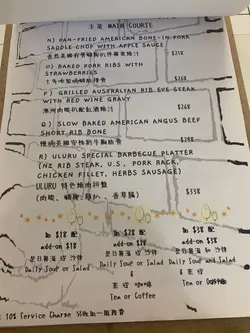 主菜 MAIN COURSE
N) PAN-FRIED AMERICAN BONE-IN PORK
SADDLE CHOP WITH APPLE SAUCE
$258
O) BAKED PORK RIBS WITH
STRAWBERRIES
$268
P) GRILLED AUSTRALIAN RIB EYE STEAK
WITH RED WINE GRAVY
$268
Q) SLOW BAKED AMERICAN ANGUS BEEF
SHORT RIB BONE
$298
R) ULURU SPECIAL BARBECUE PLATTER
(NZ RIB STEAK, U.S. PORK RACK,
CHICKEN FILLET, HERBS SAUSAGE)
ULURU 特色燒肉拼盤
$338
加 $18 配
add-on $18
是日餐湯 或 沙律
Daily Soup or Salad
加 $28 配
add-on $28
是日餐湯 或 沙律
Daily Soup or Salad
&
茶 或 咖啡
Tea or Coffee
加 $38 配
add-on $38
是日餐湯 和 沙律
Daily Soup and Salad
&
茶 或 咖啡
Tea or Coffee
10% Service Charge 另收加一服務費